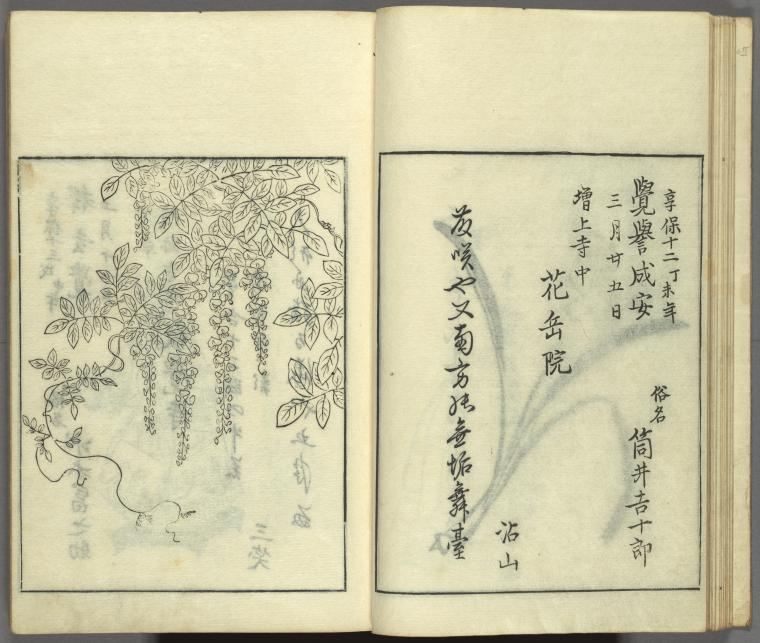 享保十二丁未年
覺譽成安
三月廿五日
俗名 筒井吉十郎
增上寺中
花岳院
咲や又南方能無垢舞臺
沾山